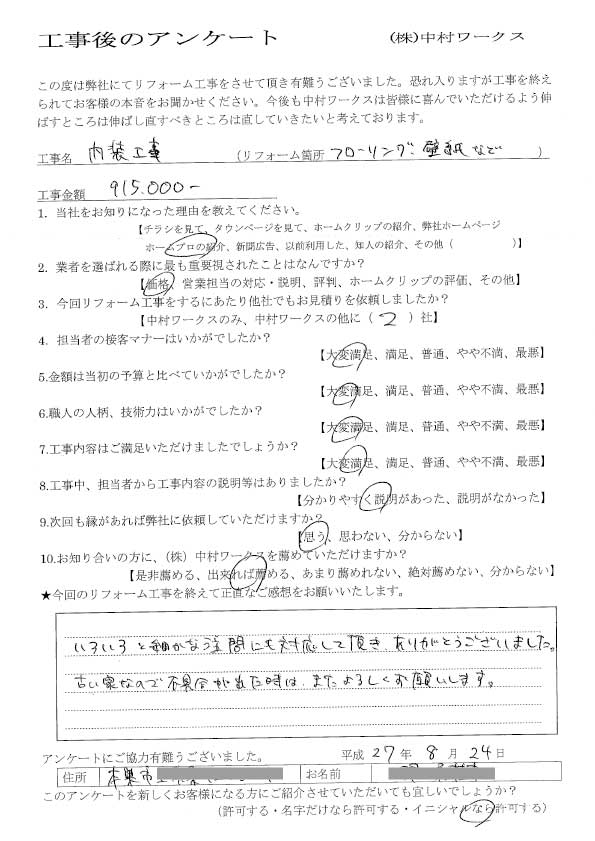 工事後のアンケート (株)中村ワークス
この度は弊社にてリフォーム工事をさせて頂き有難うございました。恐れ入りますが工事を終え
られてお客様の本音をお聞かせください。今後も中村ワークスは皆様に喜んでいただけるよう伸
ばすところは伸ばし直すべきところは直していきたいと考えております。
工事名 内装工事 (リフォーム箇所 フローリング、壁紙など )
工事金額 915.000-
1. 当社をお知りになった理由を教えてください。
【チラシを見て、タウンページを見て、ホームクリップの紹介、弊社ホームページ
ホームプロの紹介、新聞広告、以前利用した、知人の紹介、その他（ )】
2. 業者を選ばれる際に最も重要視されたことはなんですか？
【価格、営業担当の対応・説明、評判、ホームクリップの評価、その他】
3. 今回リフォーム工事をするにあたり他社でもお見積りを依頼しましたか？
【中村ワークスのみ、中村ワークスの他に（ 2 ）社】
4. 担当者の接客マナーはいかがでしたか？
【大変満足、満足、普通、やや不満、最悪】
5.金額は当初の予算と比べていかがでしたか？
【大変満足、満足、普通、やや不満、最悪】
6.職人の人柄、技術力はいかがでしたか？
【大変満足、満足、普通、やや不満、最悪】
7.工事内容はご満足いただけましたでしょうか？
【大変満足、満足、普通、やや不満、最悪】
8.工事中、担当者から工事内容の説明等はありましたか？
【分かりやすく説明があった、説明がなかった】
9.次回も縁があれば弊社に依頼していただけますか？
【思う、思わない、分からない】
10.お知り合いの方に、（株）中村ワークスを薦めていただけますか？
【是非薦める、出来れば薦める、あまり薦めれない、絶対薦めない、分からない】
★今回のリフォーム工事を終えて正直なご感想をお願いいたします。
いろいろと細かな注問にも対応して頂き、ありがとうございました。
古い家なので不具合が出た時は、またよろしくお願いします。
アンケートにご協力有難うございました。 平成 27 年 8 月 24 日
住所 本巣市 お名前
このアンケートを新しくお客様になる方にご紹介させていただいても宜しいでしょうか？
（許可する・名字だけなら許可する・イニシャルなら許可する）